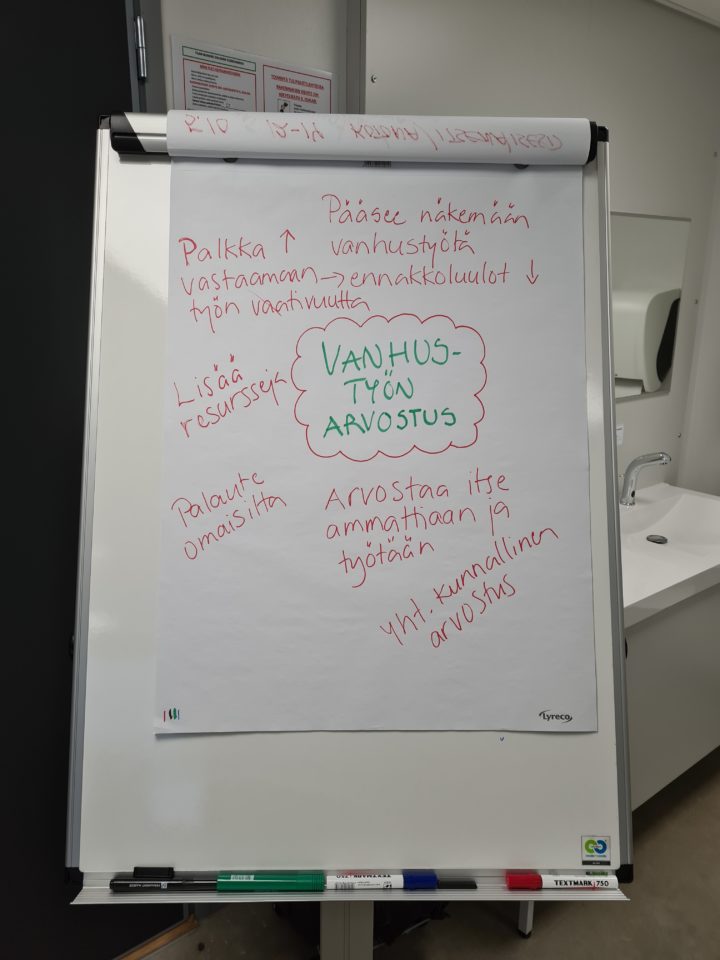 Pääsee näkemään
vanhustyötä
→ ennakkoluulot ↓
Palkka ↑
vastaamaan
työn vaativuutta
VANHUS-
TYÖN
ARVOSTUS
Lisää
resursseja
Palaute
omaisilta
Arvostaa itse
ammattiaan ja
työtään
yht. kunnallinen
arvostus
Lyreco
TEXTMARK 750